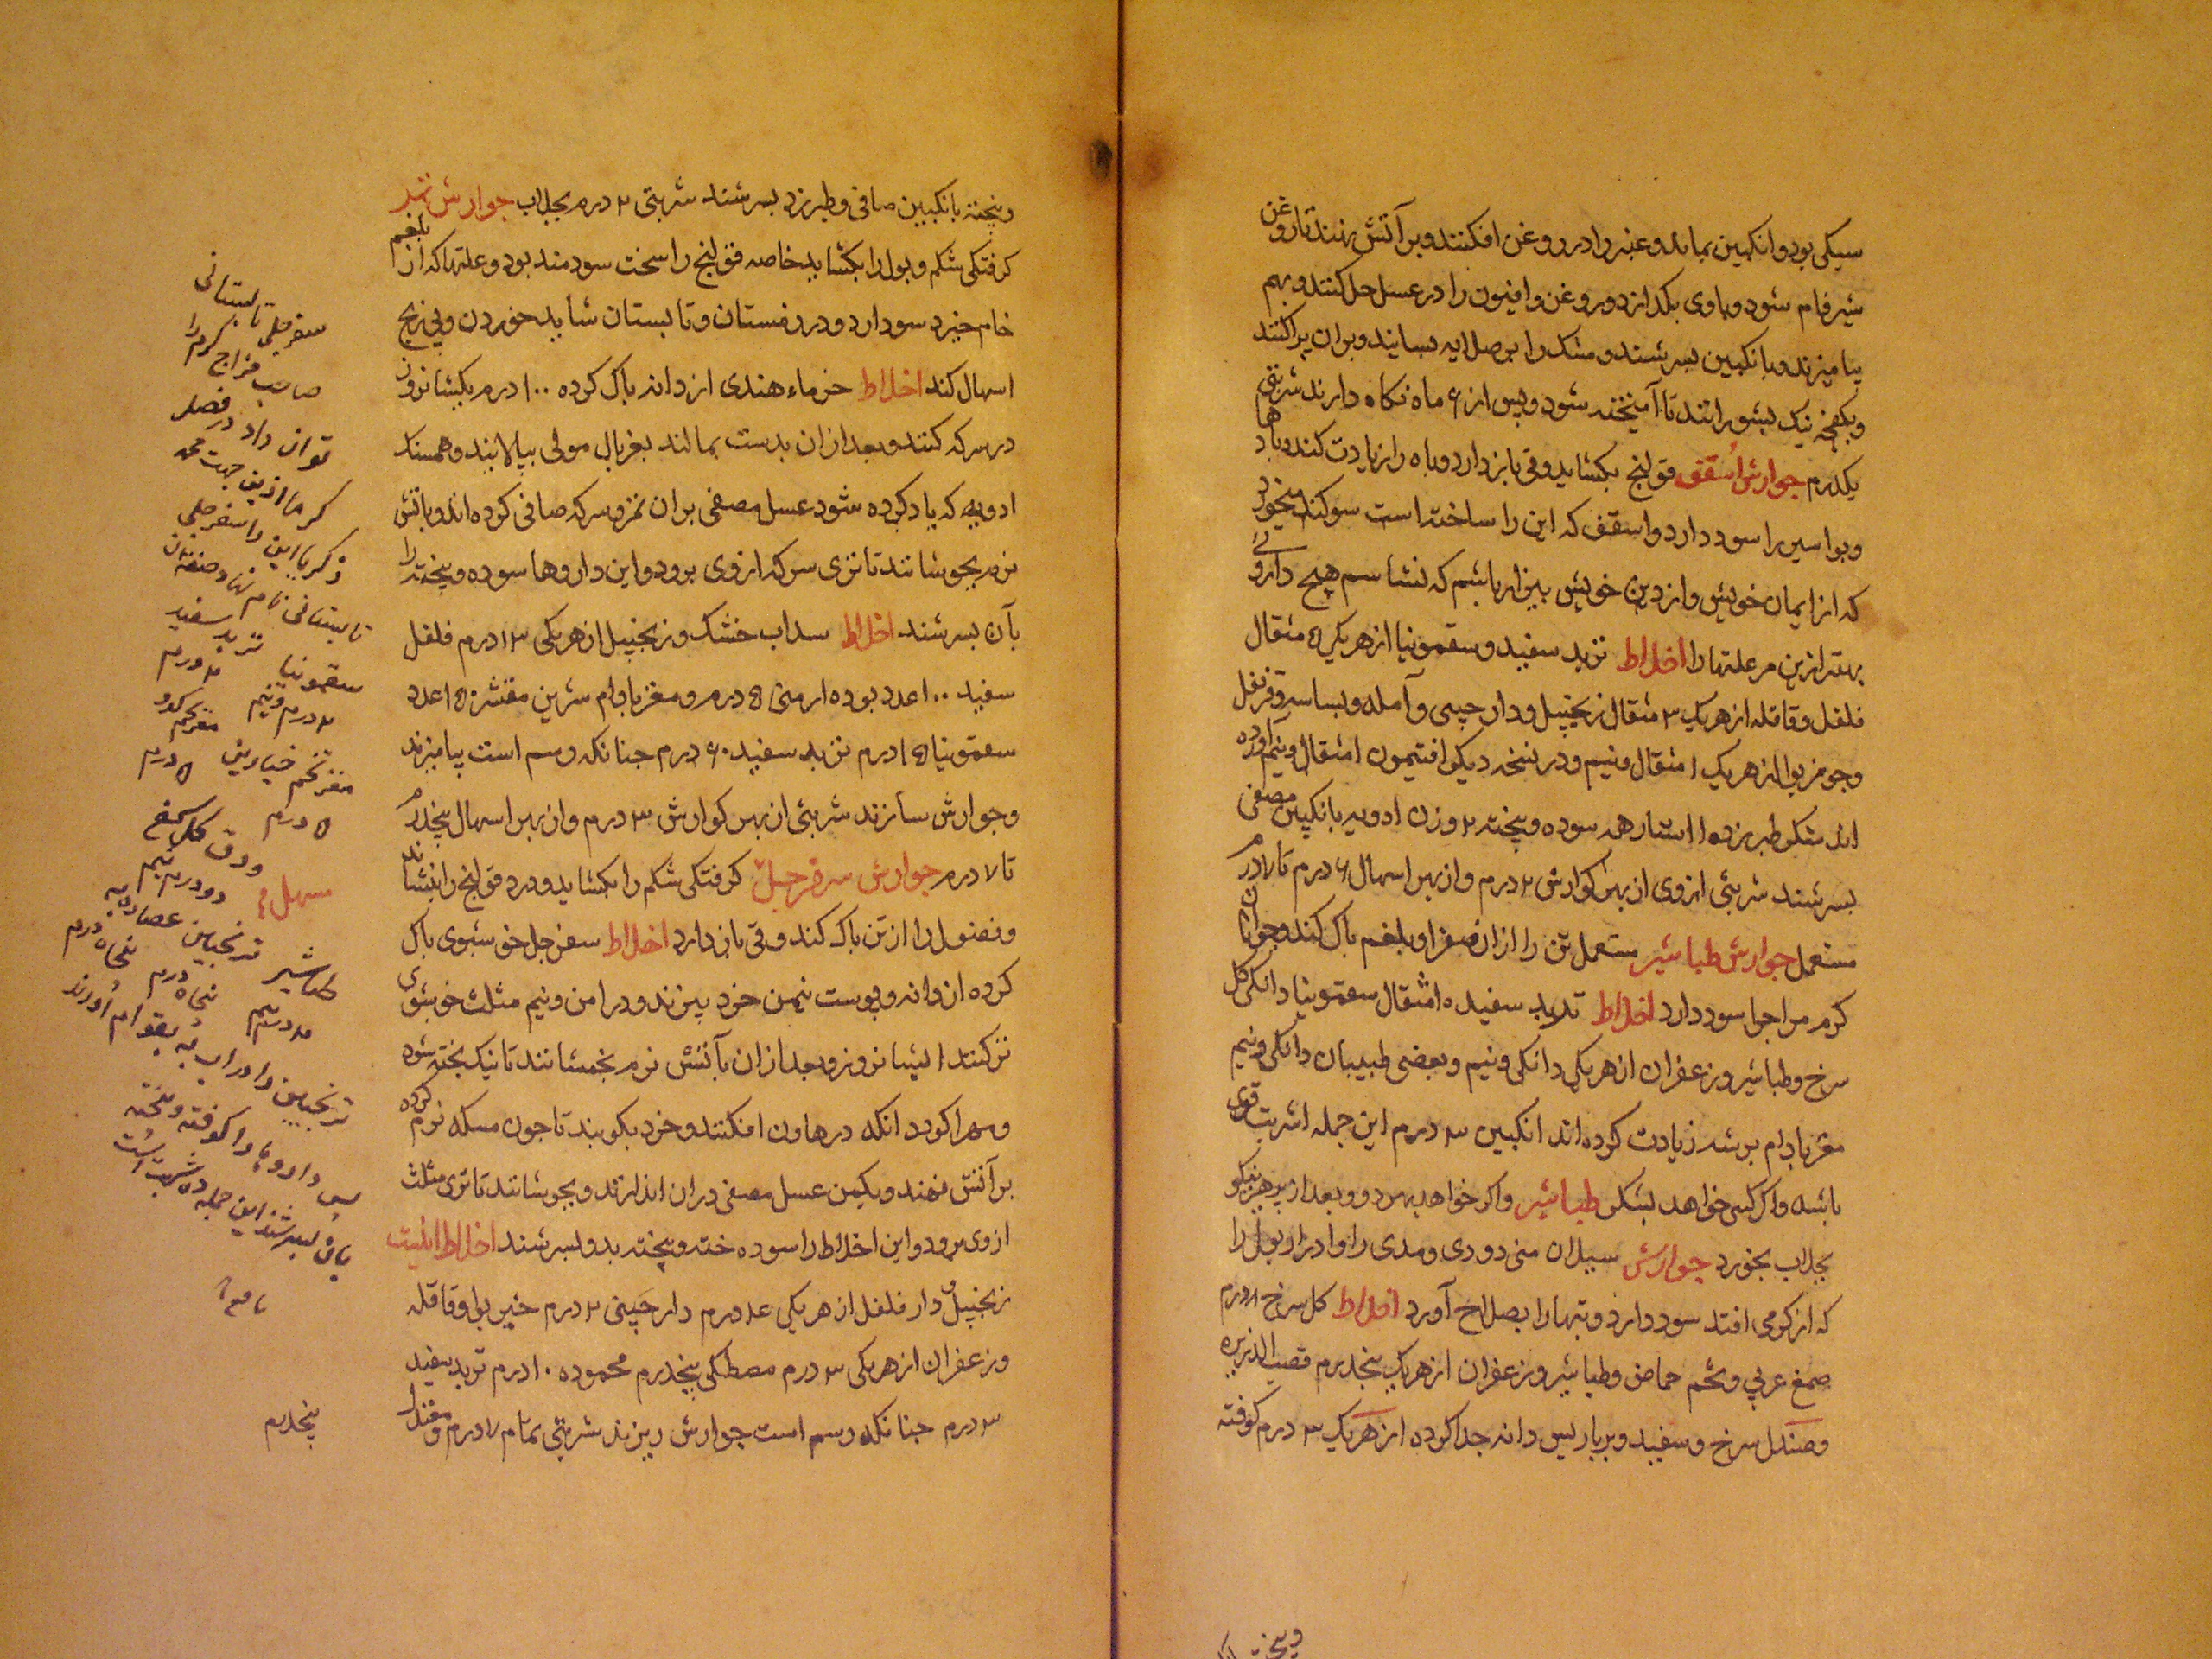 سیکی بود و انکبین بماند و عنبر را در روغن افکنند و بر آتش نهند تا روغن
شیر فام شود و باوی بکدازد و روغن و افیون را در عسل حل کنند و بهم
بیامیزند و بانکبین بسرشند و مشک را بر صلایه بسایند و بران پراکنند
و بکفچه نیک بشورانند تا آمیخته شود و پس از ۶ ماه نکاه دارند شربتی
یکدرم جوارش اسقف قولنج بکشاید و قی بازدارد و باه را زیادت کند و بادها
و بواسیر را سود دارد و اسقف که این را ساخته است سوکند میخورد
که از ایمان خویش و از دین خویش بیزار باشم که نشناسم هیچ داروئی
بهتر ازین مر علتها را اخلاط تربد سفید و سقمونیا از هر یکی ۵ مثقال
فلفل و قاقله از هر یک ۳ مثقال زنجبیل و دار چینی و آمله و بسباسه و قرنفل
و جوز بوا از هر یک ۱ مثقال و نیم و در نسخه دیکر افتیمون ۱ مثقال و نیم آورده
اند شکر طبرزد استار همه سوده و بیخته ۲ وزن ادویه بانکبین مصفی
بسرشند شربتی از وی از بهر کوارش ۲ درم و از بهر اسهال ۶ درم تا ۷ درم
مستعمل جوارش طباشیر مستعمل تن را از ان صفرا و بلغم پاک کند و جوانان
کرم مزاج را سود دارد اخلاط تربد سفید ۱۵ مثقال سقمونیا دانکی کل
سرخ و طباشیر و زعفران از هر یکی دانکی و نیم و بعضی طبیبان دانکی و نیم
مغز بادام برشه زیادت کرده اند انکبین ۳ درم این جمله ۱ شربت قوی
باشد و اکر کسی خواهد بشکر طباشیر و اکر خواهد بهر دو و بعد از پرهیز نیکو
بجلاب بخورد جوارش سیلان منی و ودی و مذی را و ادرار بول را
که از کرمی افتد سود دارد و تبها را بصلاح آورد اخلاط کل سرخ ۸ درم
صمغ عربی و تخم حماض و طباشیر و زعفران از هر یک پنجدرم قصب الذریره
و صندل سرخ و سفید و برباریس دانه جدا کرده از هر یک ۳ درم کوفته
و بیخته
و بیخته بانکبین صافی و طبرزد بسرشند شربتی ۲ درم بجلاب جوارش تمر
کرفتکی شکم و بول را بکشاید خاصه قولنج را سخت سودمند بود و علتها که از بلغم
خام خیزد سود دارد و در زمستان و تابستان شاید خوردن و بی رنج
اسهال کند اخلاط خرماء هندی از دانه پاک کرده ۱۰۰ درم یکشبانروز
در سرکه کنند و بعد ازان بدست بمالند بغربال موئی بپالایند و همسنک
ادویه که یاد کرده شود عسل مصفی بران تمر و سرکه صافی کرده اند و بآتش
نرم بجوشانند تا تری سرکه از وی برود و این داروها سوده و بیخته را
بآن بسرشند اخلاط سداب خشک و زنجبیل از هر یکی ۱۳ درم فلفل
سفید ۱۰۰ عدد بوده ارمنی ۵ درم و مغز بادام شیرین مقشر ۱۵ عدد
سقمونیا ۱۵ درم تربد سفید ۶۰ درم چنانکه رسم است بیامیزند
و جوارش سازند شربتی از بهر کوارش ۳ درم و از بهر اسهال پنجدرم
تا ۷ درم جوارش سفرجل کرفتکی شکم را بکشاید و درد قولنج را بنشاند
و فضول را از تن پاک کند و قی باز دارد اخلاط سفرجل خوشبوی پاک
کرده از دانه و پوست نیمن خرد ببزند و در ۱ من و نیم مثلث خوشبوی
تر کنند ۱ شبانروز و بعد ازان بآتش نرم بجوشانند تا نیک پخته شود
و مهرا کردد انکه در هاون افکنند و خرد بکوبند تا چون مسکه نرم کرده
بر آتش نهند و یکمن عسل مصفی دران اندازند و بجوشانند تا تری مثلث
از وی برود و این اخلاط را سوده خته و بیخته بدو بسرشند اخلاط اینست
زنجبیل و دار فلفل از هر یکی ۴ درم دار چینی ۲ درم خیر بوا و قاقله
و زعفران از هر یکی ۳ درم مصطکی پنجدرم محموده ۱۰ درم تربد سفید
۳ درم چنانکه رسم است جوارش بزند شربتی تمام ۷ درم و مقدار
پنجدرم
سفرجلی تابستانی
صاحب مزاج کرم را
توان داد در فصل
کرما ازین جهت محمد
زکریا این را سفرجلی
تابستانی نام نهاد صفت آن
سقمونیا تربد سفید
۲ درم و نیم ۲ درم
مغز تخم خیارین مغز تخم کدو
۵ درم ۵ درم
ورق کل سرخ
دو درم نیم
طباشیر ترنجبین عصاره به
۲ درم نیم پنجاه درم پنجاه درم
ترنجبین را در آب به بقوام آورند
پس داروها را کوفته و بیخته
بآن بسرشند این جمله ده شربت است
نافع